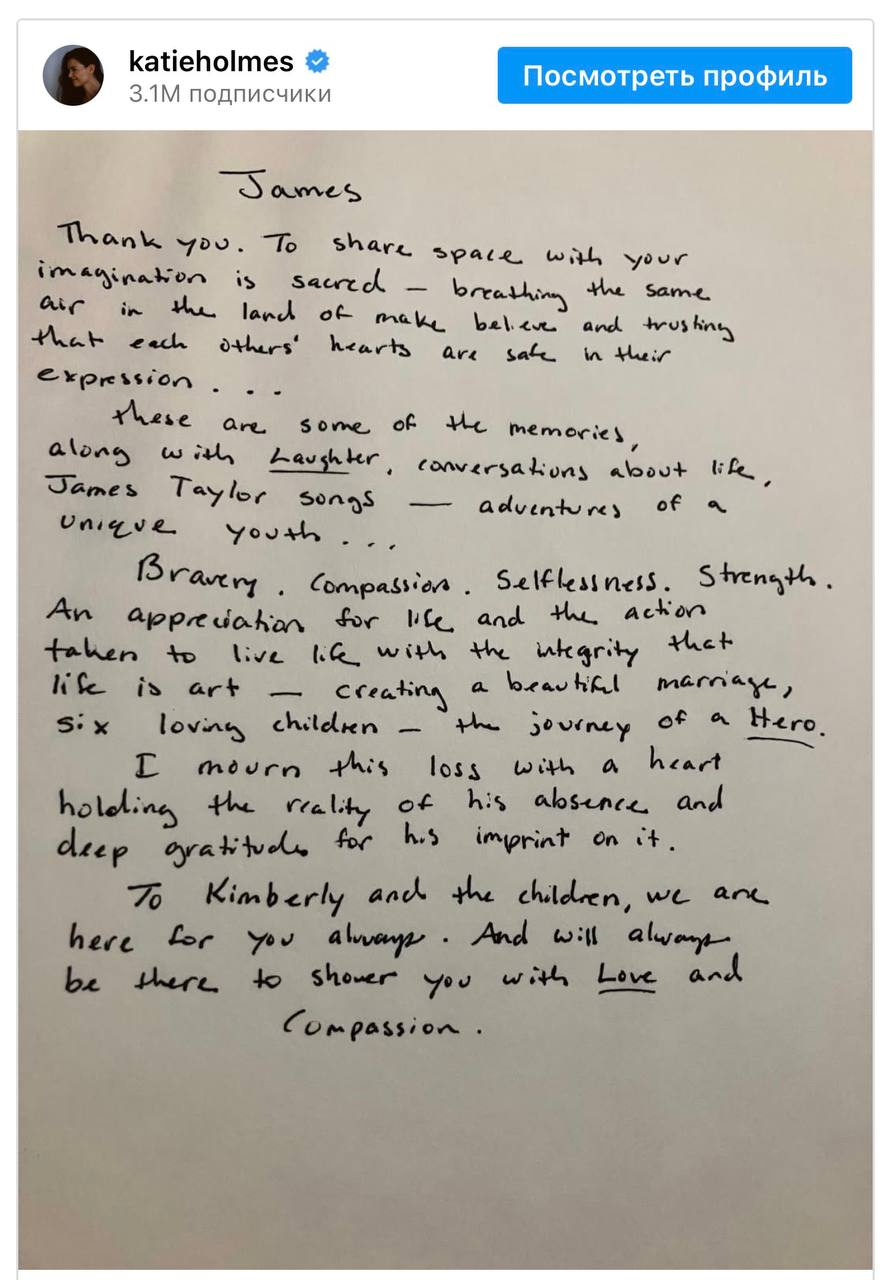 katieholmes
3.1M подписчики
Посмотреть профиль
James
Thank you. To share space with your
imagination is sacred — breathing the same
air in the land of make believe and trusting
that each others' hearts are safe in their
expression . . .
these are some of the memories,
along with Laughter, conversations about life,
James Taylor songs — adventures of a
unique youth . . .
Bravery. Compassion. Selflessness. Strength.
An appreciation for life and the action
taken to live life with the integrity that
life is art — creating a beautiful marriage,
six loving children — the journey of a Hero.
I mourn this loss with a heart
holding the reality of his absence and
deep gratitude for his imprint on it.
To Kimberly and the children, we are
here for you always. And will always
be there to shower you with Love and
Compassion.